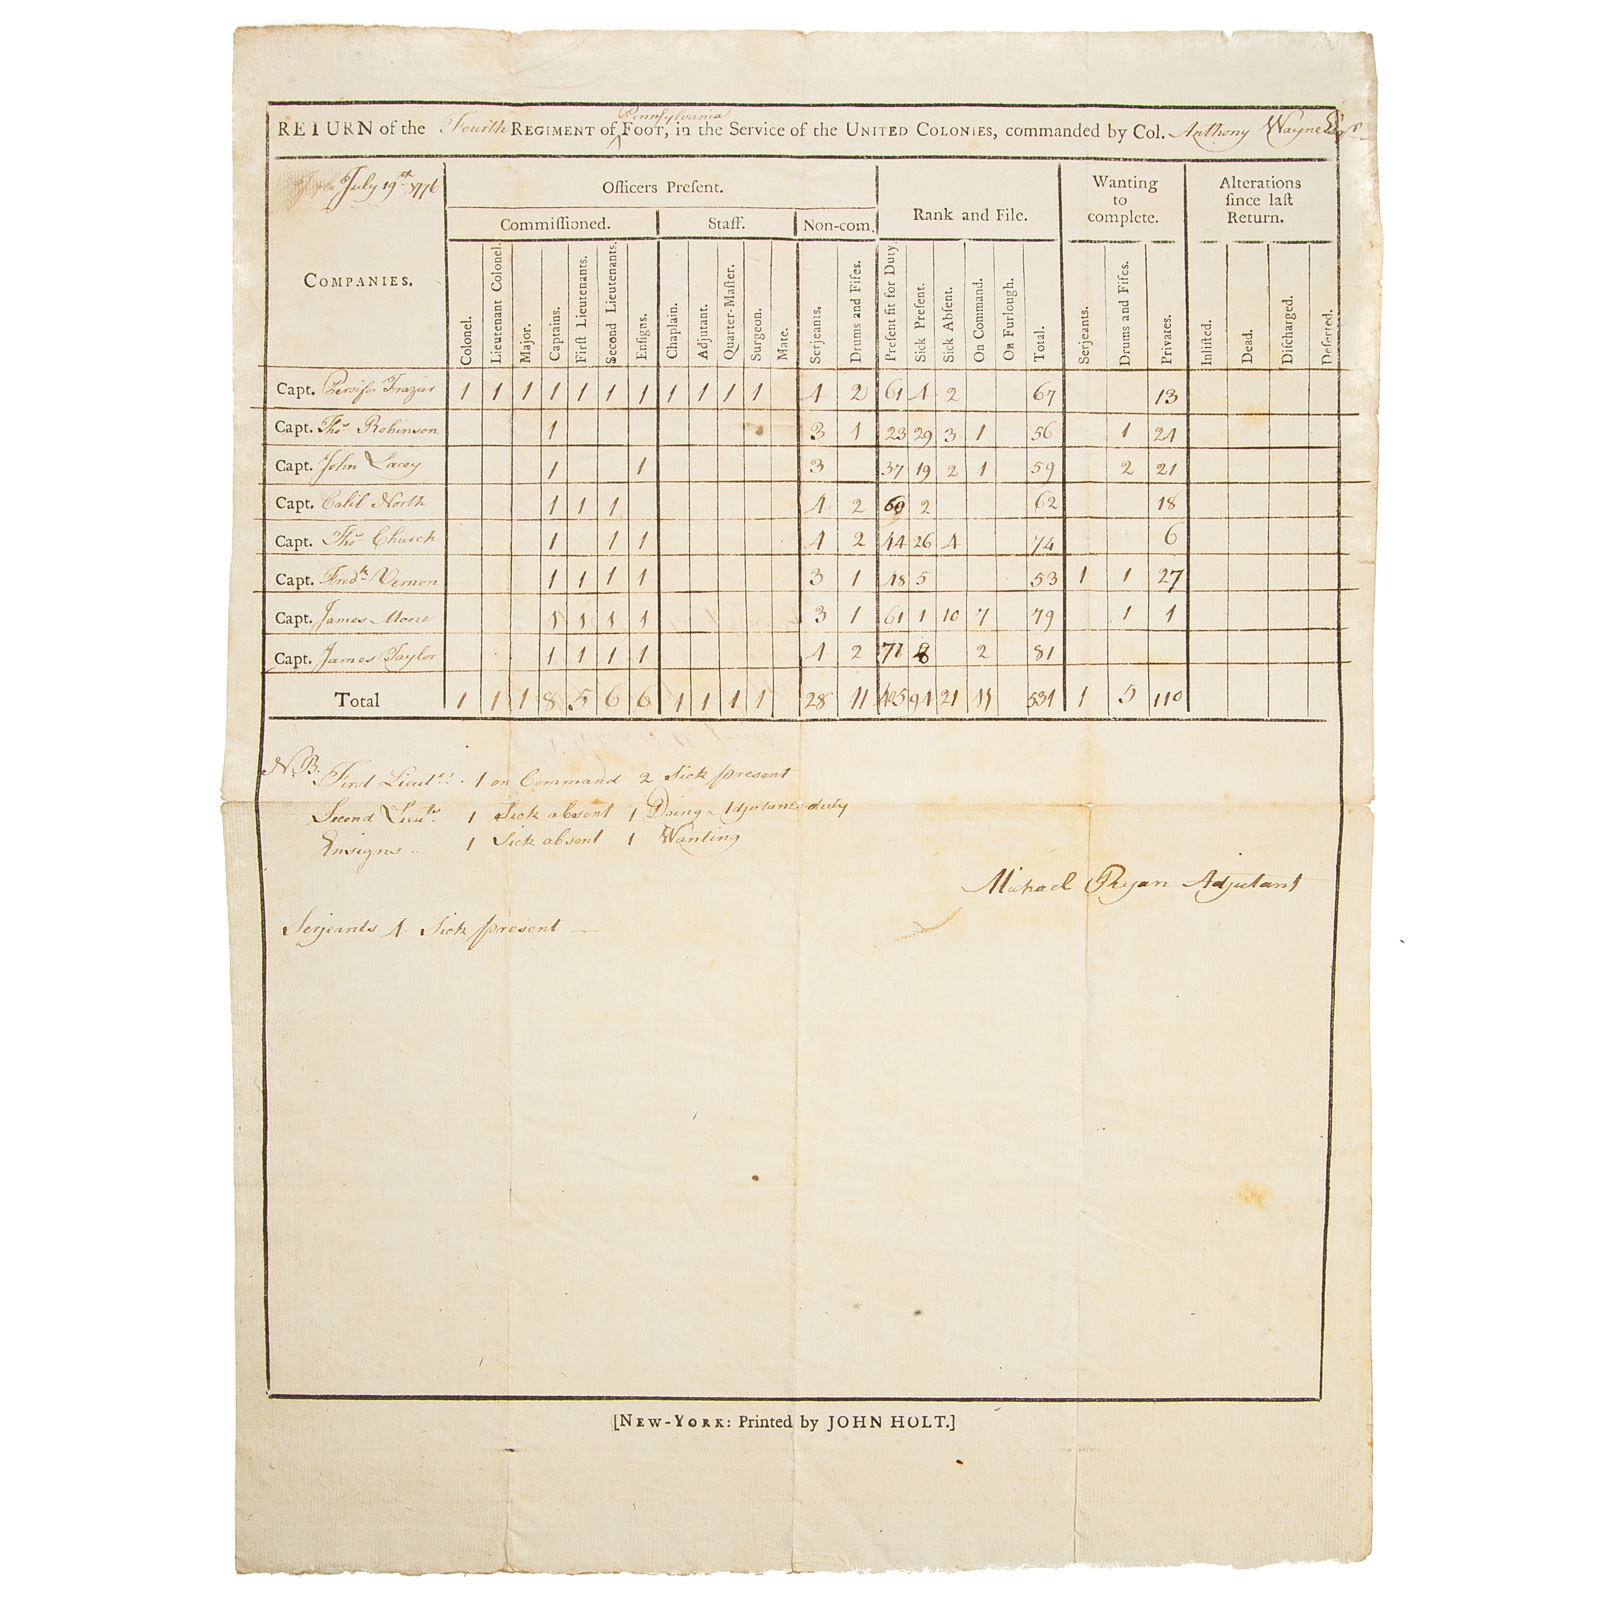 RETURN of the Fourth REGIMENT of Pennsylvania FOOT, in the Service of the UNITED COLONIES, commanded by Col. Anthony Wayne Esqr
July 19st 1776
COMPANIES.
Officers Preſent.
Commiſſioned.
Staff.
Non-com.
Rank and File.
Wanting
to
complete.
Alterations
ſince laſt
Return.
Colonel. Lieutenant Colonel. Major. Captains. Firſt Lieutenants. Second Lieutenants. Enſigns. Chaplain. Adjutant. Quarter-Maſter. Surgeon. Mate. Serjeants. Drums and Fifes. Preſent fit for Duty. Sick Preſent. Sick Abſent. On Command. On Furlough. Total. Serjeants. Drums and Fifes. Privates. Inliſted. Dead. Diſcharged. Deſerted.
Capt. Persifor Frazier 1 1 1 1 1 1 1 1 1 1 1 4 2 61 4 2 67 13
Capt. Thos Robinson 1 3 1 23 29 3 1 56 1 24
Capt. John Lacey 1 1 3 37 19 2 1 59 2 21
Capt. Calib North 1 1 1 4 2 60 2 62 18
Capt. Thos Church 1 1 1 4 2 44 26 4 74 6
Capt. Fredk Vernon 1 1 1 1 3 1 48 5 53 1 1 27
Capt. James Moore 1 1 1 1 3 1 61 1 10 7 79 1 1
Capt. James Taylor 1 1 1 1 4 2 71 8 2 81
Total 1 1 1 8 5 6 6 1 1 1 1 28 11 405 94 21 11 531 1 5 110
N.B. First Lieuts. 1 on Command 2 Sick present
Second Lieuts 1 Sick absent 1 Doing Adjutants duty
Ensigns .. 1 Sick absent 1 Wanting
Michael Ryan Adjutant
Serjeants 4 Sick present
[NEW-YORK: Printed by JOHN HOLT.]